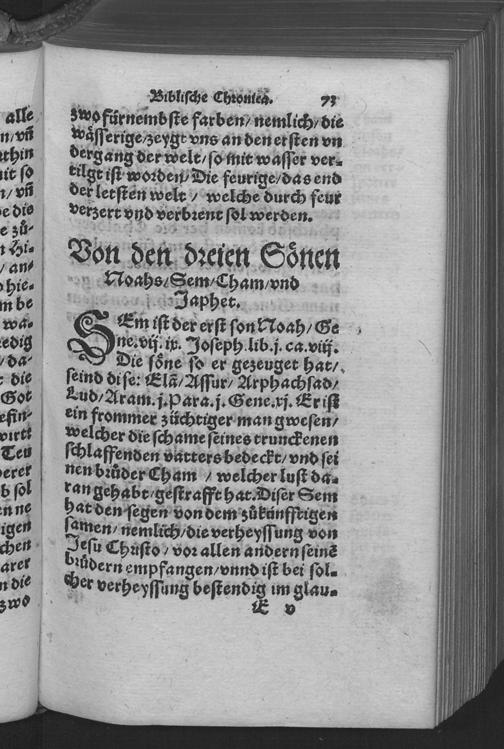 alle
n/vñ
rthin
nit so
n/vñ
be die
e zů-
n Hi-
/an-
p hie-
m be
wa-
redig
/da-
t die
Got
efin-
wirtt
Teu
perer
b sol
en ne
igen
chen
arer
n die
zwo
Biblische Chronica. 73
zwo fürnembste farben/nemlich/die
wässerige/zeygt vns an den ersten vn
dergang der welt/so mit wasser ver-
tilgt ist worden/Die feurige/das end
der letsten welt/ welche durch feur
verzert vnd verbrent sol werden.
Von den dreien Sönen
Noahs/Sem/Cham/vnd
Japhet.
SEm ist der erst son Noah/Ge
ne.vij.ix. Joseph.lib.j.ca.viij.
Die söne so er gezeuget hat/
seind dise: Elã/Assur/Arphachsad/
Lud/Aram.j.Para.j.Gene.xj. Er ist
ein frommer züchtiger man gwesen/
welcher die schame seines trunckenen
schlaffenden vatters bedeckt/vnd sei
nen brüder Cham / welcher lust da-
ran gehabt/gestrafft hat.Diser Sem
hat den segen von dem zůkünfftigen
samen/nemlich/die verheyssung von
Jesu Christo/vor allen andern seinẽ
brüdern empfangen/vnnd ist bei sol-
cher verheyssung bestendig im glau-
E v